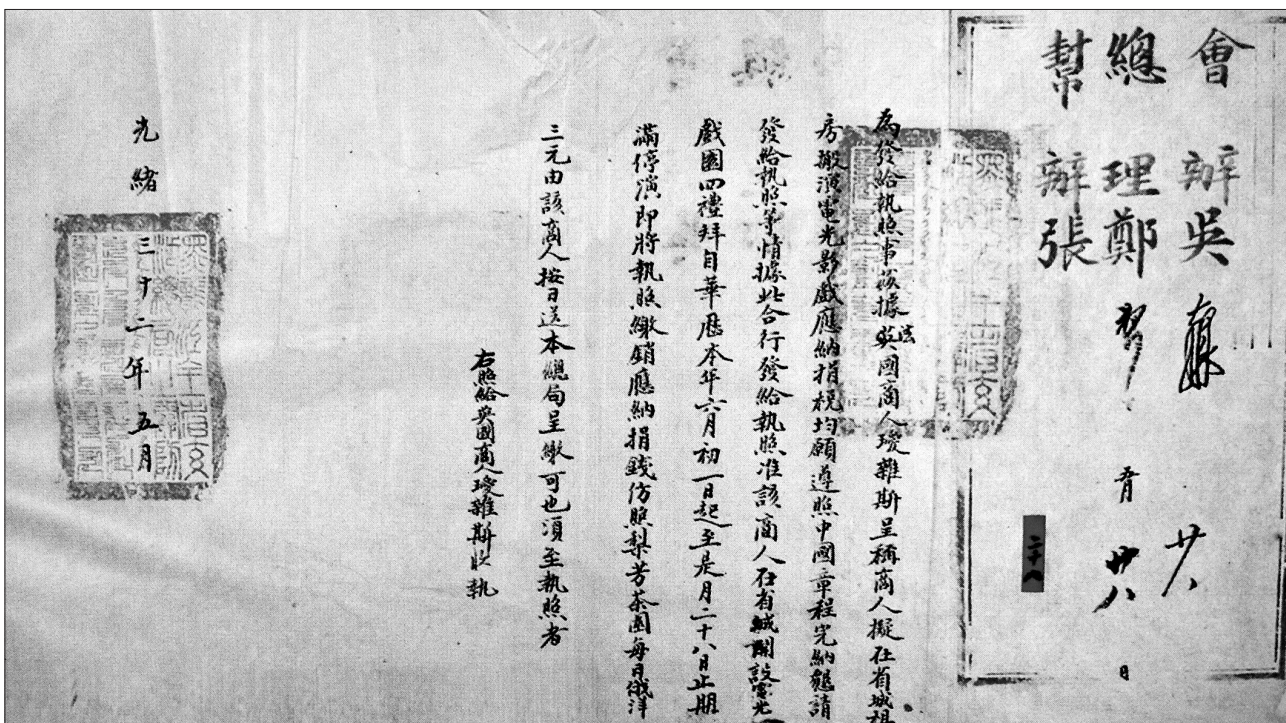 會辦吳
總理鄭
幫辦張
廿八
五月廿八日
二十八
為發給執照事茲據英國商人璦雜斯呈稱商人擬在省城租
房搬演電光影戲應納捐稅均願遵照中國章程完納懇請
發給執照等情據此合行發給執照准該商人在省城開設電光
戲園四禮拜自華歷本年六月初一日起至是月二十八日止期
滿停演即將執照繳銷應納捐錢仿照梨芳茶園每日俄洋
三元由該商人按日送本總局呈繳可也須至執照者
右照給英國商人璦雜斯收執
光緒三十二年五月